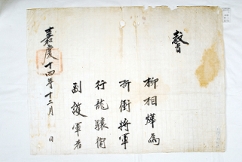 敎旨
柳相爲
折衝將軍
行龍驤衛
副護軍者
嘉慶十四年十二月 日